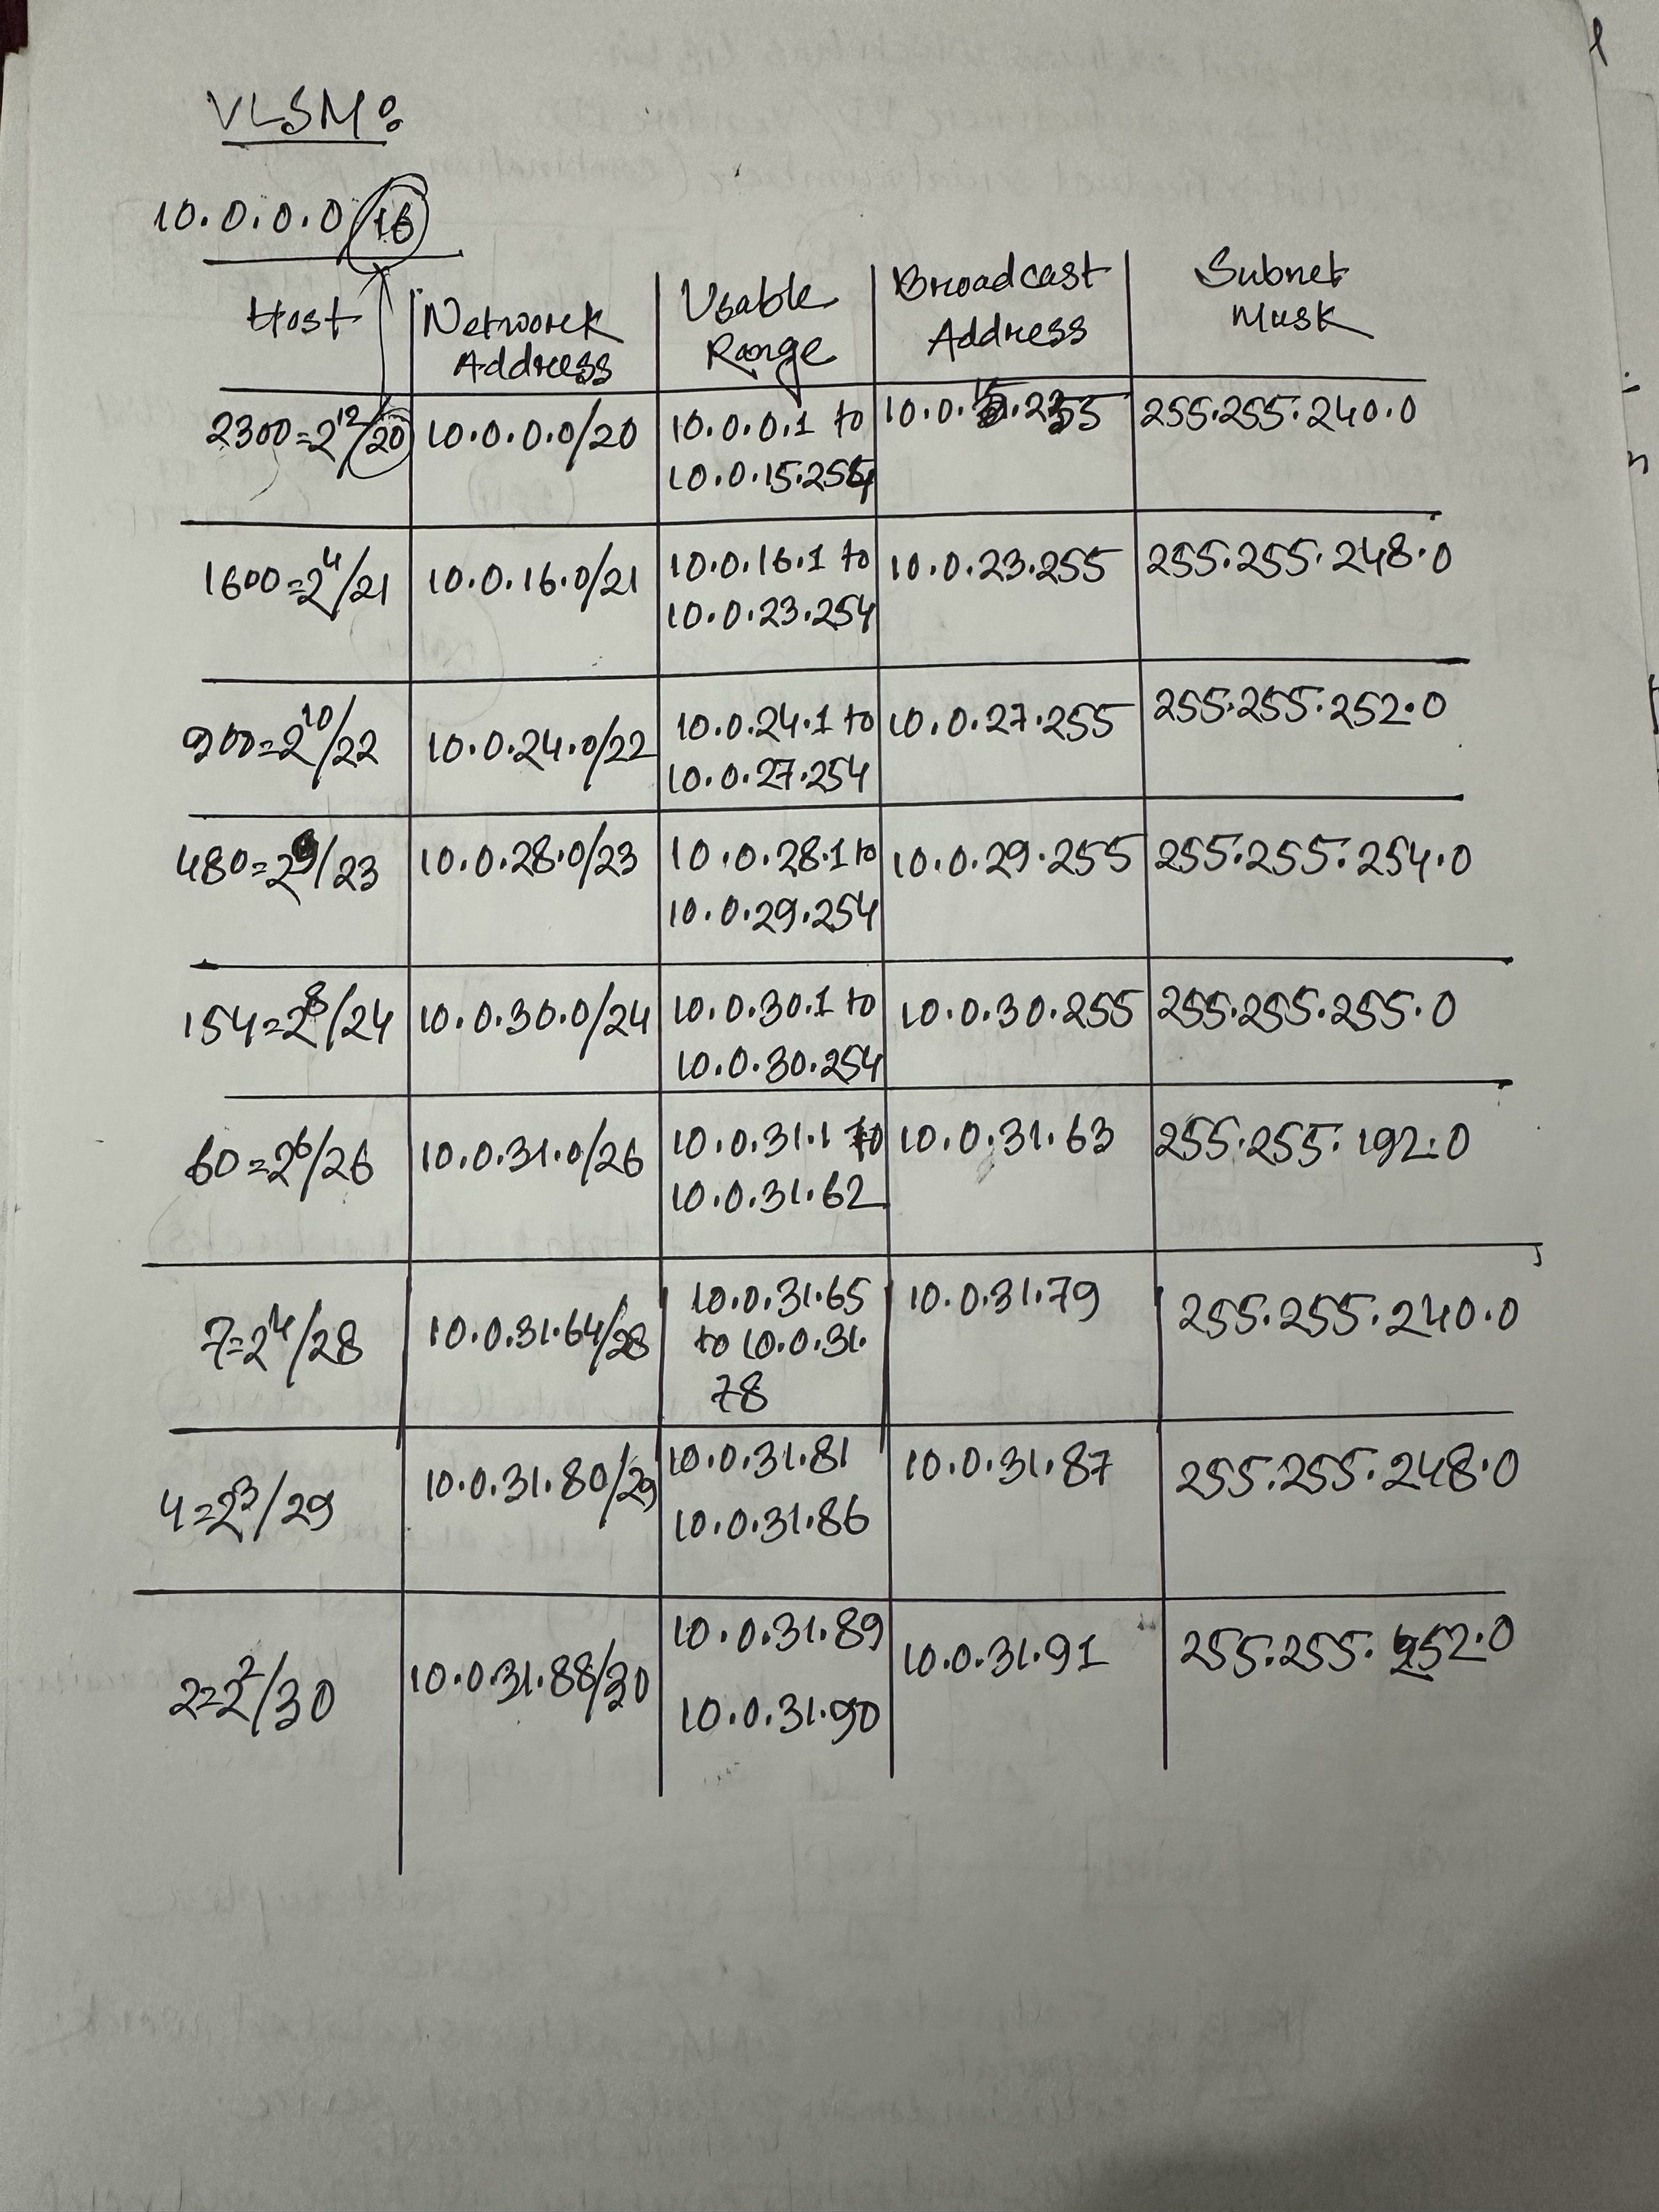 VLSM:
10.0.0.0/16
Host
Network Address
Usable Range
Broadcast Address
Subnet Mask
2300=2^12/20
10.0.0.0/20
10.0.0.1 to
10.0.15.254
10.0.15.255
255.255.240.0
1600=2^4/21
10.0.16.0/21
10.0.16.1 to
10.0.23.254
10.0.23.255
255.255.248.0
900=2^10/22
10.0.24.0/22
10.0.24.1 to
10.0.27.254
10.0.27.255
255.255.252.0
480=2^9/23
10.0.28.0/23
10.0.28.1 to
10.0.29.254
10.0.29.255
255.255.254.0
154=2^8/24
10.0.30.0/24
10.0.30.1 to
10.0.30.254
10.0.30.255
255.255.255.0
60=2^6/26
10.0.31.0/26
10.0.31.1 to
10.0.31.62
10.0.31.63
255.255.192.0
7=2^4/28
10.0.31.64/28
10.0.31.65
to 10.0.31.
78
10.0.31.79
255.255.240.0
4=2^3/29
10.0.31.80/29
10.0.31.81
10.0.31.86
10.0.31.87
255.255.248.0
2=2^2/30
10.0.31.88/30
10.0.31.89
10.0.31.90
10.0.31.91
255.255.252.0